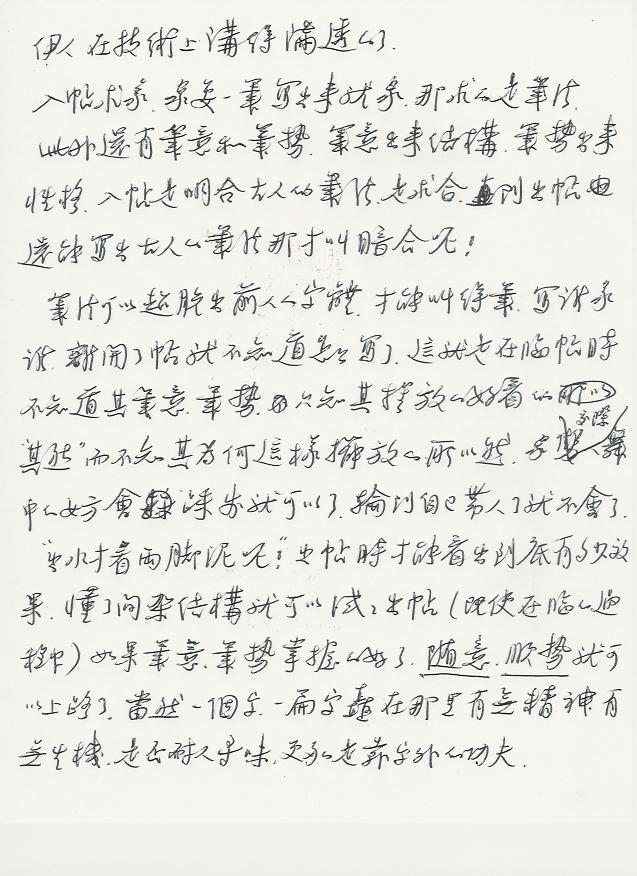 伊人在技術上講得滿透的了.
入帖求象.象妥一筆寫出來就象.那求的是筆法.
此外還有筆意和筆势.筆意出來結構.筆势出來
性格.入帖是明合古人的筆法.是求合.直到出帖也
還能寫出古人的筆法那才叫暗合呢!
筆法可以超脱出前人的字體.才能叫得筆.寫谁象
谁.離開了帖就不知道怎么寫了.這就是在臨帖時
不知道其筆意.筆势.只知其擺放的好看的
"其然"而不知其为何這樣擺放的所以然.交際舞
中的女方會踩步就可以了.輪到自己带人了就不會了.
"出水才看兩脚泥呢!"出帖時才能看出到底有多少效
果.懂了间架結構就可以试试出帖(既使在臨的過
程中)如果筆意.筆势掌握的好了.随意.顺势就可
以上路了.當然一個字.一扁字 在那里有無精神.有
無生機.是否耐人寻味.更多的是靠字外的功夫.